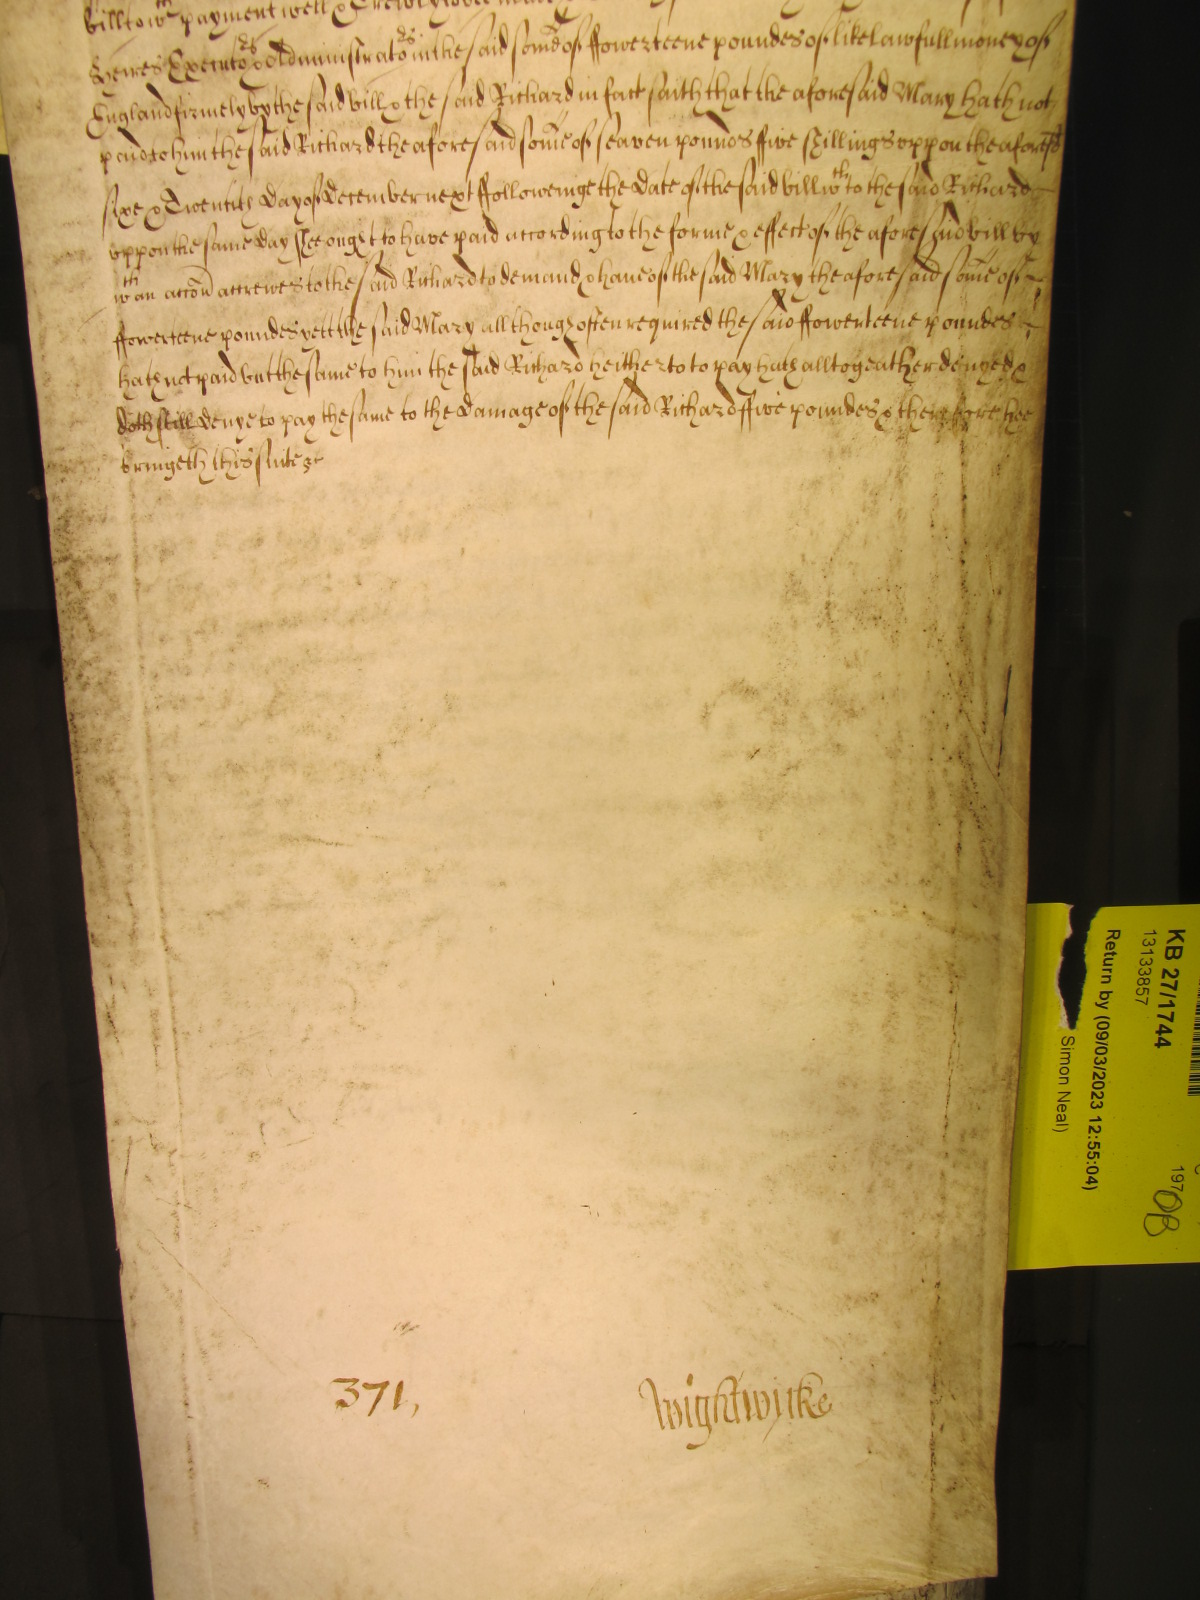 bill to wch payment well & trewly
heires Executors & Administrators in the said some of ffowerteene poundes of like lawfull money of
England firmely by the said bill & the said Richard in fact saith that the aforesaid Mary hath not
paid to him the said Richard the aforesaid some of seaven pounds ffive shillings uppon the aforesd
sixe & Twentith day of December next ffolloweinge the date of the said bill wch to the said Richard
uppon the same day shee ought to have paid according to the forme & effect of the aforesaid bill by
wch an accon accrewes to the said Richard to demand & have of the said Mary the aforesaid some of
ffowerteene poundes yett the said Mary allthough often required the said ffowerteene poundes
hath not paid but the same to him the said Richard heitherto to pay hath alltogeather denyed &
doth still denye to pay the same to the damage of the said Richard ffive poundes & therefore hee
bringeth this suite &c
371,
Wightwicke
KB 27/1744
13133857
Return by (09/03/2023 12:55:04)
Simon Neal)
197